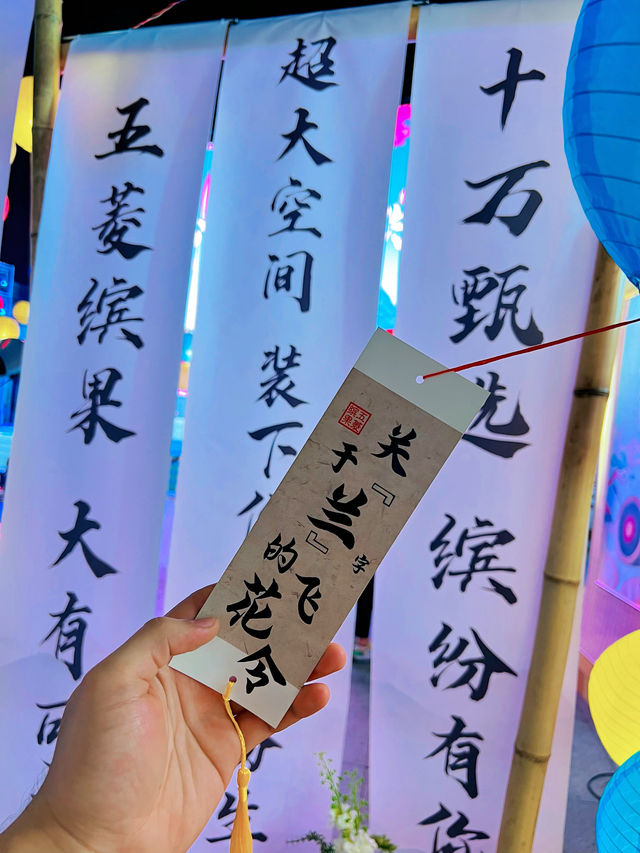 十万甄选 缤纷有你
超大空间 装下
生
五菱缤果 大有可
关于『兰』字
的飞花令
五菱
缤果